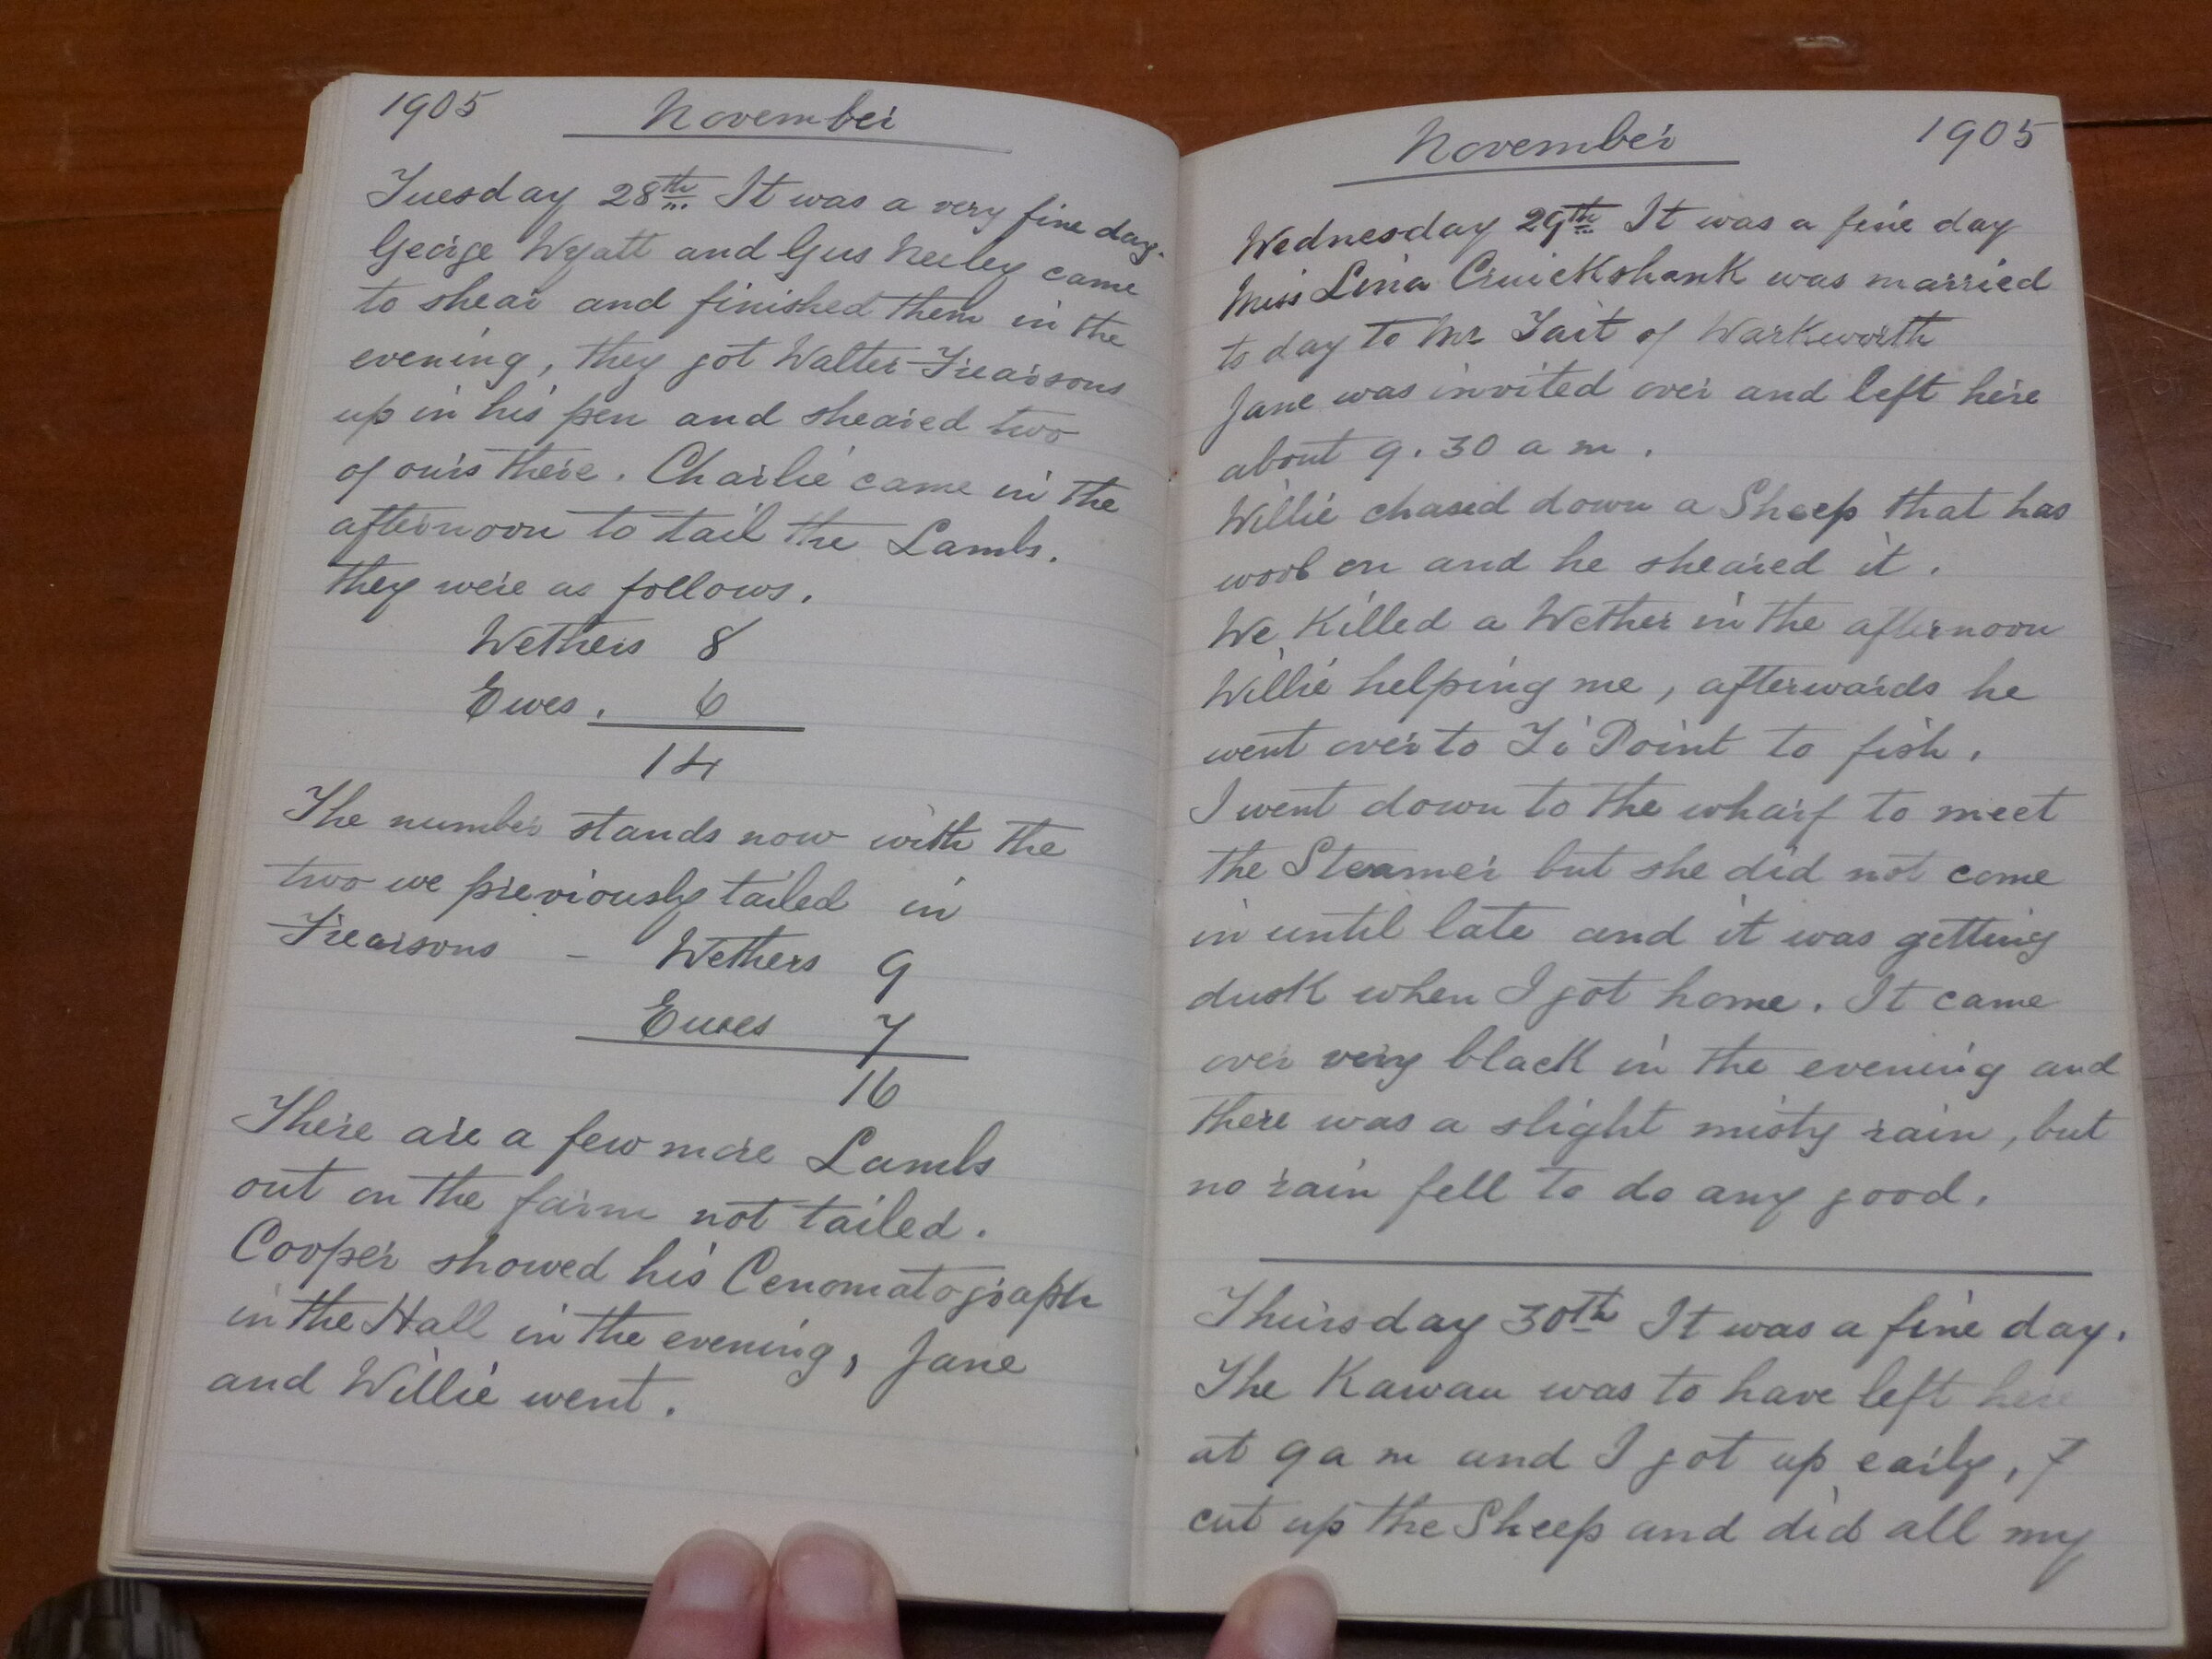 1905 November
Tuesday 28th It was a very fine day.
George Wyatt and Gus Neeley came
to shear and finished them in the
evening, they got Walter Frearsons
up in his pen and sheared two
of ours there. Charlie came in the
afternoon to tail the Lambs.
they were as follows.
Wethers 8
Ewes. 6
14
The number stands now with the
two we previously tailed in
Frearsons - Wethers 9
Ewes 7
16
There are a few more Lambs
out on the farm not tailed.
Cooper showed his Cenomatograph
in the Hall in the evening, Jane
and Willie went.
November 1905
Wednesday 29th It was a fine day
Miss Lina Cruickshank was married
to day to Mr Tait of Warkworth
Jane was invited over and left here
about 9.30 a m.
Willie chased down a Sheep that has
wool on and he sheared it.
We Killed a Wether in the afternoon
Willie helping me, afterwards he
went over to Ti Point to fish.
I went down to the wharf to meet
the Steamer but she did not come
in until late and it was getting
dusk when I got home. It came
over very black in the evening and
there was a slight misty rain, but
no rain fell to do any good.
Thursday 30th It was a fine day.
The Kawau was to have left here
at 9 a m and I got up early, I
cut up the Sheep and did all my